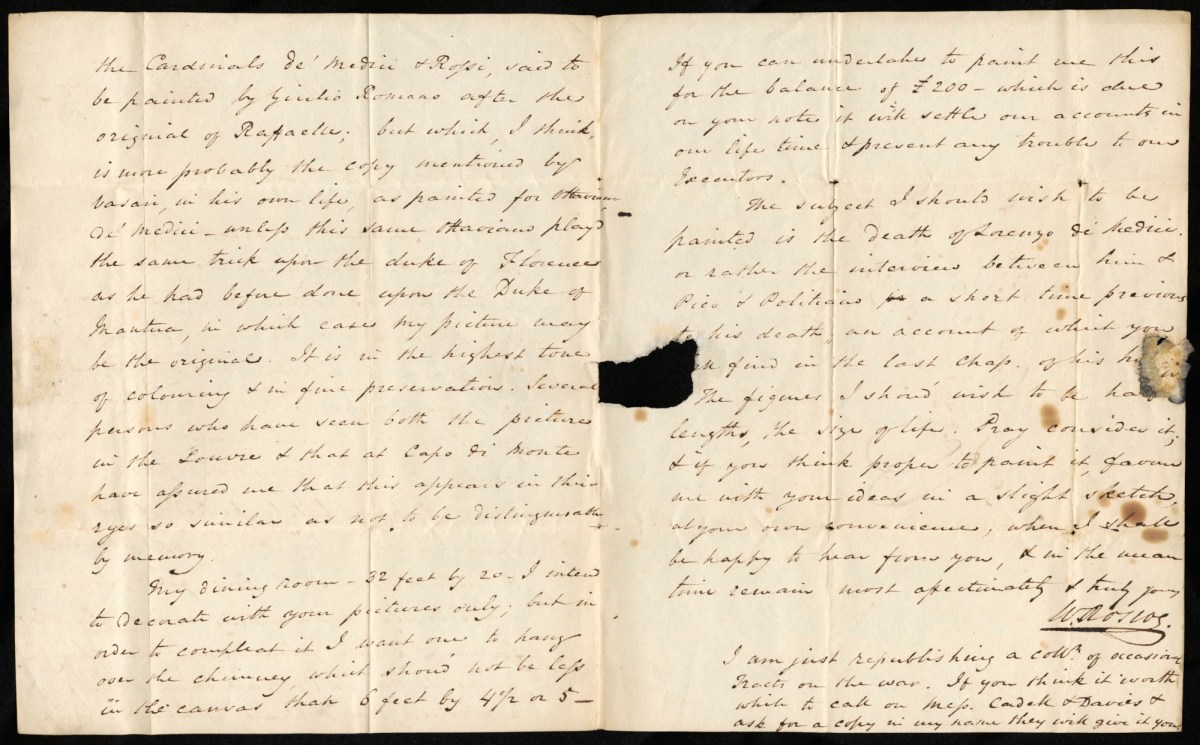 the Cardinals de' Medici & Rossi, said to
be painted by Giulio Romano after the
original of Raffaelle; but which, I think,
is more probably the copy mentioned by
Vasari, in his own life, as painted for Ottaviano
de' Medici – unless this same Ottaviano play'd
the same trick upon the duke of Florence
as he had before done upon the Duke of
Mantua, in which case my picture may
be the original. It is in the highest tone
of colouring & in fine preservation. Several
persons who have seen both the picture
in the Louvre & that at Capo di Monte
have assured me that this appears in their
eyes so similar as not to be distinguishable
by memory.
My dining room – 32 feet by 20 – I intend
to decorate with your pictures only; but in
order to compleat it I want one to hang
over the chimney which shoud not be less
in the canvas than 6 feet by 4 1/2 or 5 –
If you can undertake to paint me this
for the balance of £200 – which is due
on your note it will settle our accounts in
our life time & prevent any trouble to our
Executors.
The subject I should wish to be
painted is the death of Lorenzo di Medici.
or rather the interview between him &
Pico & Politiano a short time previous
to his death, an account of which you
find in the last Chap. of his
The figures I shoud wish to be half
lengths, the size of life. Pray consider it;
& if you think proper to paint it, favour
me with your ideas in a slight sketch,
at your own convenience, when I shall
be happy to hear from you, & in the mean
time remain most affectionately & truly yours
W. Roscoe.
I am just republishing a colln. of occasional
Tracts on the war. If you think it worth
while to call on Mess. Cadell & Davies &
ask for a copy in my name they will give it you